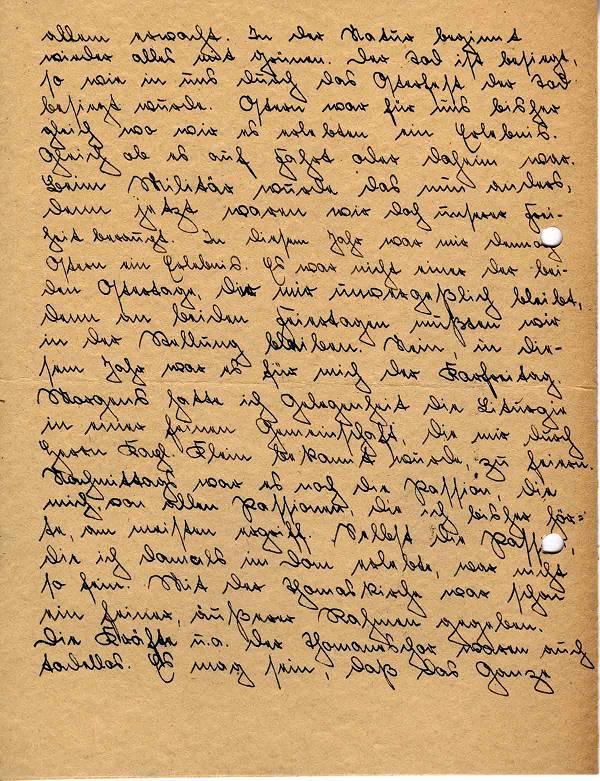 allem erwacht. In der Natur beginnt
wieder alles mit Grünen. Der Tod ist besiegt,
so wie in uns durch das Osterfest der Tod
besiegt wurde. Ostern war für uns bisher
gleich wo wir es erlebten ein Erlebnis.
Gleich ob es auf Fahrt oder daheim war.
Beim Militär wurde das nun anders,
denn jetzt waren wir doch unserer Frei-
heit beraubt. In diesem Jahr war mir dennoch
Ostern ein Erlebnis. Es war nicht einer der bei-
den Ostertage, der mir unvergeßlich bleibt,
denn an beiden Feiertagen mußten wir
in der Stellung bleiben. Nein, in die-
sem Jahr war es für mich der Karfreitag.
Morgens hatte ich Gelegenheit die Liturgie
in einer feinen Gemeinschaft, die mir durch
Herrn Klein bekannt wurde, zu feiern.
Nachmittags war es noch die Passion, die
mich, von allen Passionen, die ich bisher hör-
te, am meisten ergriff. Selbst die Passion,
die ich damals im Dom erlebte, war nicht
so fein. Mit der Thomaskirche war schon
ein feiner, äußerer Rahmen gegeben.
Die Kräfte u.a. der Thomanerchor waren auch
tadellos. Es mag sein, daß das Ganze